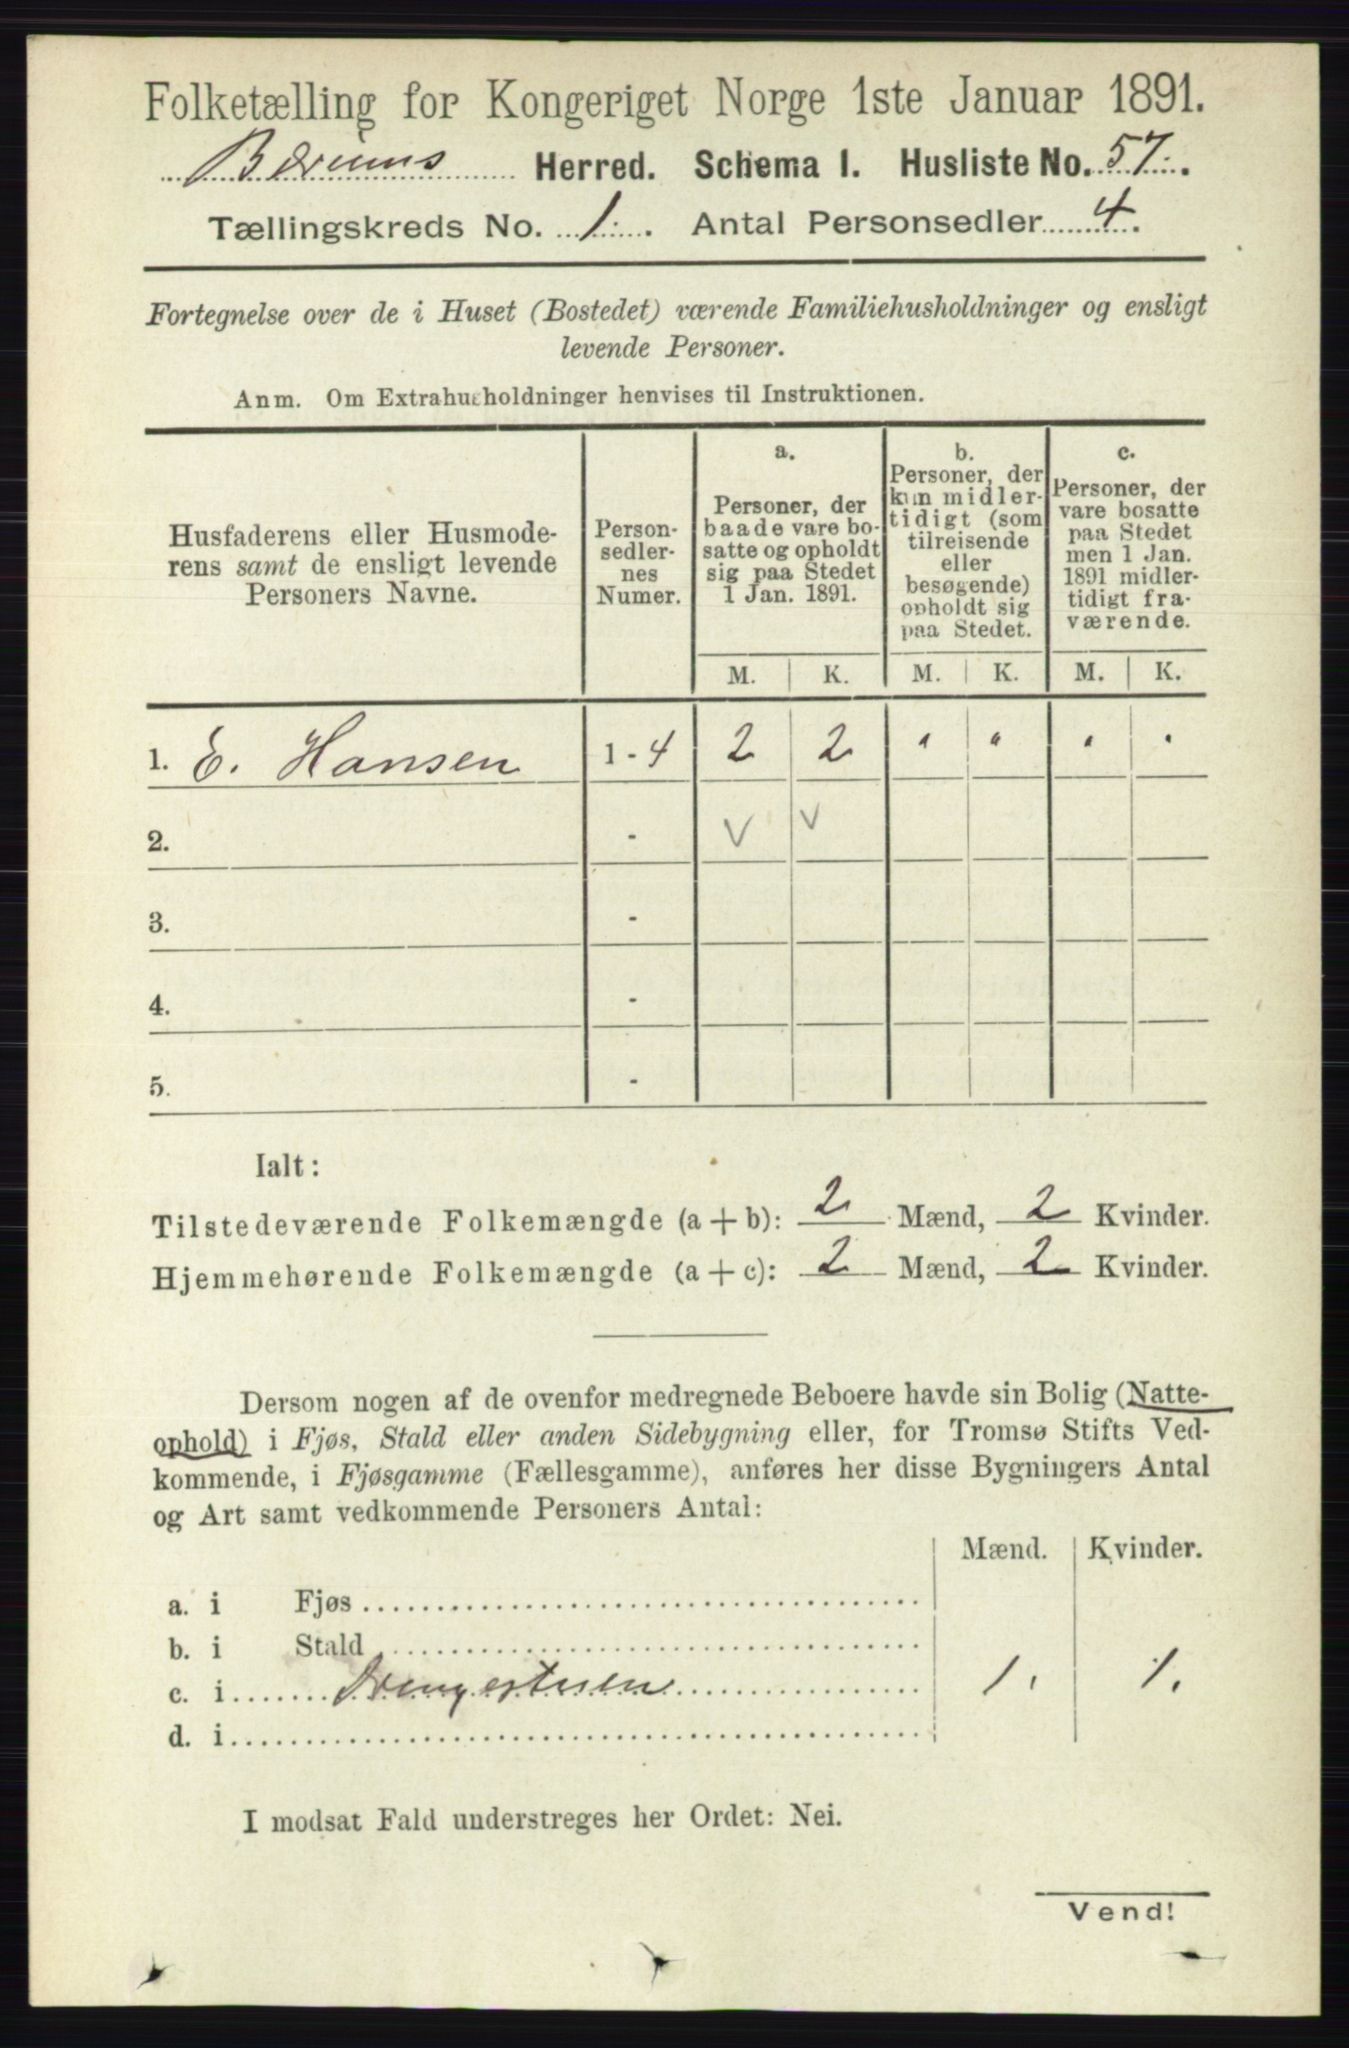 Folketælling for Kongeriget Norge 1ste Januar 1891.
Bærums Herred. Schema I. Husliste No. 57.
Tællingskreds No. 1. Antal Personsedler 4.
Fortegnelse over de i Huset (Bostedet) værende Familiehusholdninger og ensligt
levende Personer.
Anm. Om Extrahusholdninger henvises til Instruktionen.
Husfaderens eller Husmode-
rens samt de ensligt levende
Personers Navne.
Person-
sedler-
nes
Numer.
a.
Personer, der
baade vare bo-
satte og opholdt
sig paa Stedet
1 Jan. 1891.
b.
Personer, der
kun midler-
tidigt (som
tilreisende
eller
besøgende)
opholdt sig
paa Stedet.
c.
Personer, der
vare bosatte
paa Stedet
men 1 Jan.
1891 midler-
tidigt fra-
værende.
M. K. M. K. M. K.
1. E. Hansen 1 - 4 2 2 " " " "
2. - V V
3. -
4. -
5. -
Ialt:
Tilstedeværende Folkemængde (a + b): 2 Mænd, 2 Kvinder.
Hjemmehørende Folkemængde (a + c): 2 Mænd, 2 Kvinder.
Dersom nogen af de ovenfor medregnede Beboere havde sin Bolig (Natte-
ophold) i Fjøs, Stald eller anden Sidebygning eller, for Tromsø Stifts Ved-
kommende, i Fjøsgamme (Fællesgamme), anføres her disse Bygningers Antal
og Art samt vedkommende Personers Antal:
Mænd. Kvinder.
a. i Fjøs
b. i Stald
c. i Drengestuen 1. 1.
d. i
I modsat Fald understreges her Ordet: Nei.
Vend!